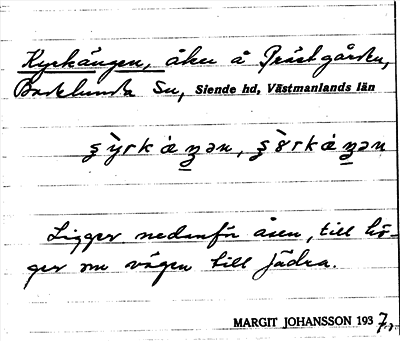 Kyrkängen, åker å Prästgården,
Badelunda Sn, Siende hd, Västmanlands län
Ligger nedanför åsen, till hö-
ger om vägen till Jädra.
MARGIT JOHANSSON 1937.